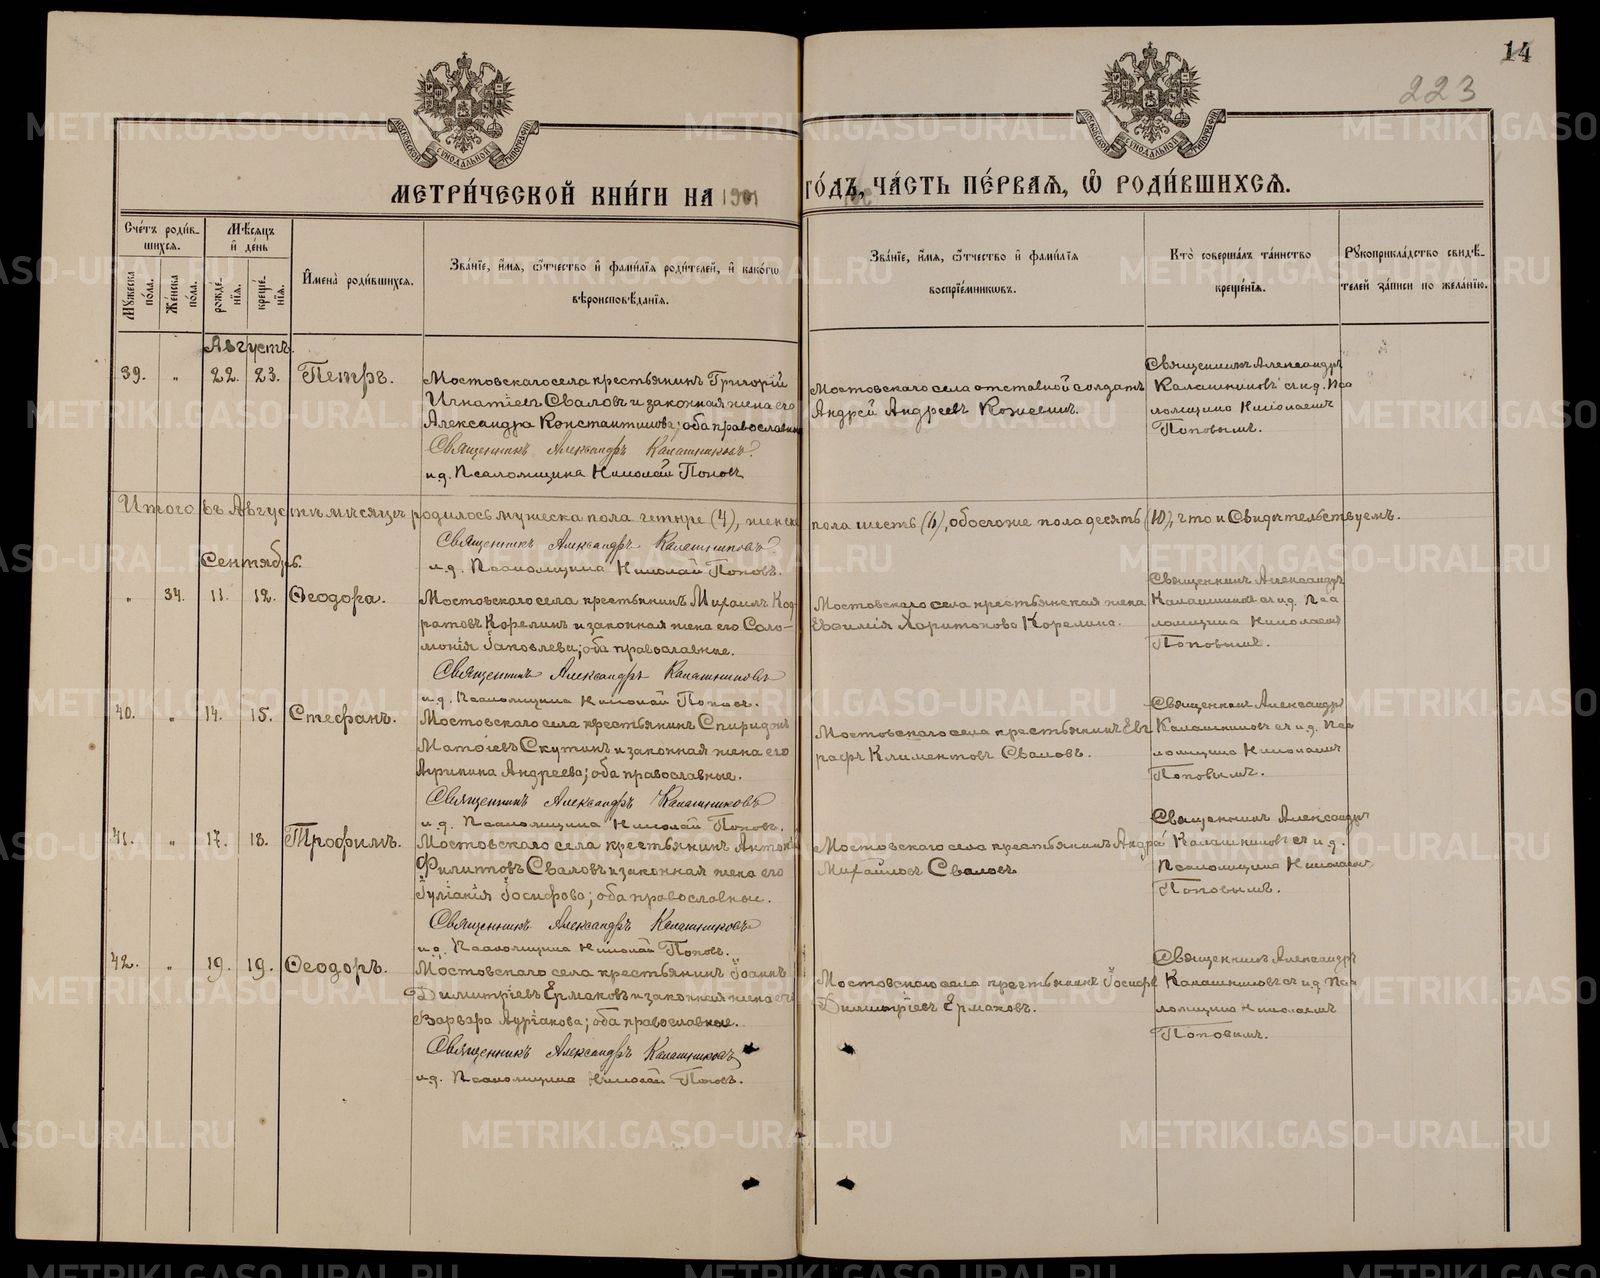 14
223
МОСКОВСКОЙ СѴНОДАЛЬНОЙ ТИПОГРАФІИ
МОСКОВСКОЙ СѴНОДАЛЬНОЙ ТИПОГРАФІИ
МЕТРИ́ЧЕСКОЙ КНИ́ГИ НА 1901 ГО́ДЪ, ЧА́СТЬ ПЕ́РВАѦ, Ѽ РОДИ́ВШИХСѦ.
Сче́тъ роди́в-
шихся.
Мꙋжеска по́ла.
Же́нска по́ла.
Мѣ́сяцъ
и҆ де́нь
рожде́-
нія.
креще́-
нія.
И҆мена̀ роди́вшихся.
Зва́ніе, и҆́мя, ѻ҆́тчество и҆ фами́лія роди́телей, и҆ како́гѡ
вѣроисповѣ́данія.
Зва́ніе, и҆́мя, ѻ҆́тчество и҆ фами́лія
воспріе́мникѡвъ.
Кто̀ соверша́лъ та́инство
креще́нія.
Рꙋкоприкла́дство свидѣ́-
телей за́писи по жела́нію.
Августъ.
39. „ 22. 23. Петръ.
Мостовскаго села крестьянинъ Григорій
Игнатіевъ Сваловъ и законная жена его
Александра Константинова; оба православные
Священникъ Александръ Калашниковъ
и.д. Псаломщика Николай Поповъ
Мостовскаго села отставной солдатъ
Андрей Андреевъ Кожевинъ.
Священникъ Александръ
Калашниковъ съ и.д. Пса
ломщика Николаемъ
Поповымъ.
Итого въ Августѣ мѣсяцѣ родилось мужеска пола четыре (4), женска пола шесть (6), обоего же пола десять (10), что и свидѣтельствуемъ.
Священникъ Александръ Калашниковъ
и.д. Псаломщика Николай Поповъ.
Сентябрь.
„ 34. 11. 12. Ѳеодора.
Мостовскаго села крестьянинъ Михаилъ Код
ратовъ Корелинъ и законная жена его Соло-
монія Іаковлева; оба православные.
Священникъ Александръ Калашниковъ
и.д. Псаломщика Николай Поповъ.
Мостовскаго села крестьянская жена
Евѳимія Харитонова Корелина.
Священникъ Александръ
Калашниковъ съ и.д. Пса
ломщика Николаемъ
Поповымъ.
40. „ 14. 15. Стефанъ.
Мостовскаго села крестьянинъ Спиридонъ
Матѳіевъ Скутинъ и законная жена его
Агрипина Андреева; оба православные.
Священникъ Александръ Калашниковъ
и.д. Псаломщика Николай Поповъ.
Мостовскаго села крестьянинъ Евг
рафъ Климентовъ Сваловъ.
Священникъ Александръ
Калашниковъ съ и.д. Пса
ломщика Николаемъ
Поповымъ.
41. „ 17. 18. Трофимъ.
Мостовскаго села крестьянинъ Антоній
Филиповъ Сваловъ и законная жена его
Іуліанія Іосифова; оба православные.
Священникъ Александръ Калашниковъ
и.д. Псаломщика Николай Поповъ.
Мостовскаго села крестьянинъ Андрей
Михайловъ Сваловъ
Священникъ Александръ
Калашниковъ съ и.д.
Псаломщика Николаемъ
Поповымъ.
42. „ 19. 19. Ѳеодоръ.
Мостовскаго села крестьянинъ Іоаннъ
Димитріевъ Ермаковъ и законная жена его
Варвара Авріамова; оба православные.
Священникъ Александръ Калашниковъ
и.д. Псаломщика Николай Поповъ.
Мостовскаго села крестьянинъ Іосифъ
Димитріевъ Ермаковъ.
Священникъ Александръ
Калашниковъ съ и.д. Пса
ломщика Николаемъ
Поповымъ.
METRIKI.GASO-URAL.RU